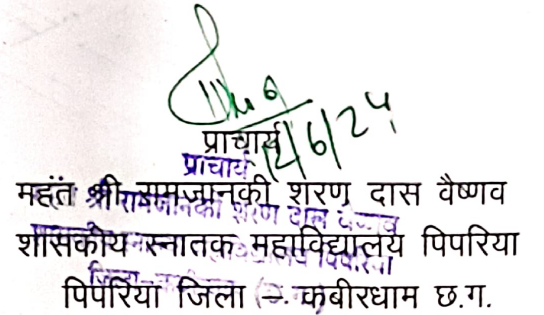 12/6/24
प्राचार्य
प्राचार्य
महंत श्री रामजानकी शरण दास वैष्णव
शासकीय स्नातक महाविद्यालय पिपरिया
पिपरिया जिला – कबीरधाम छ.ग.